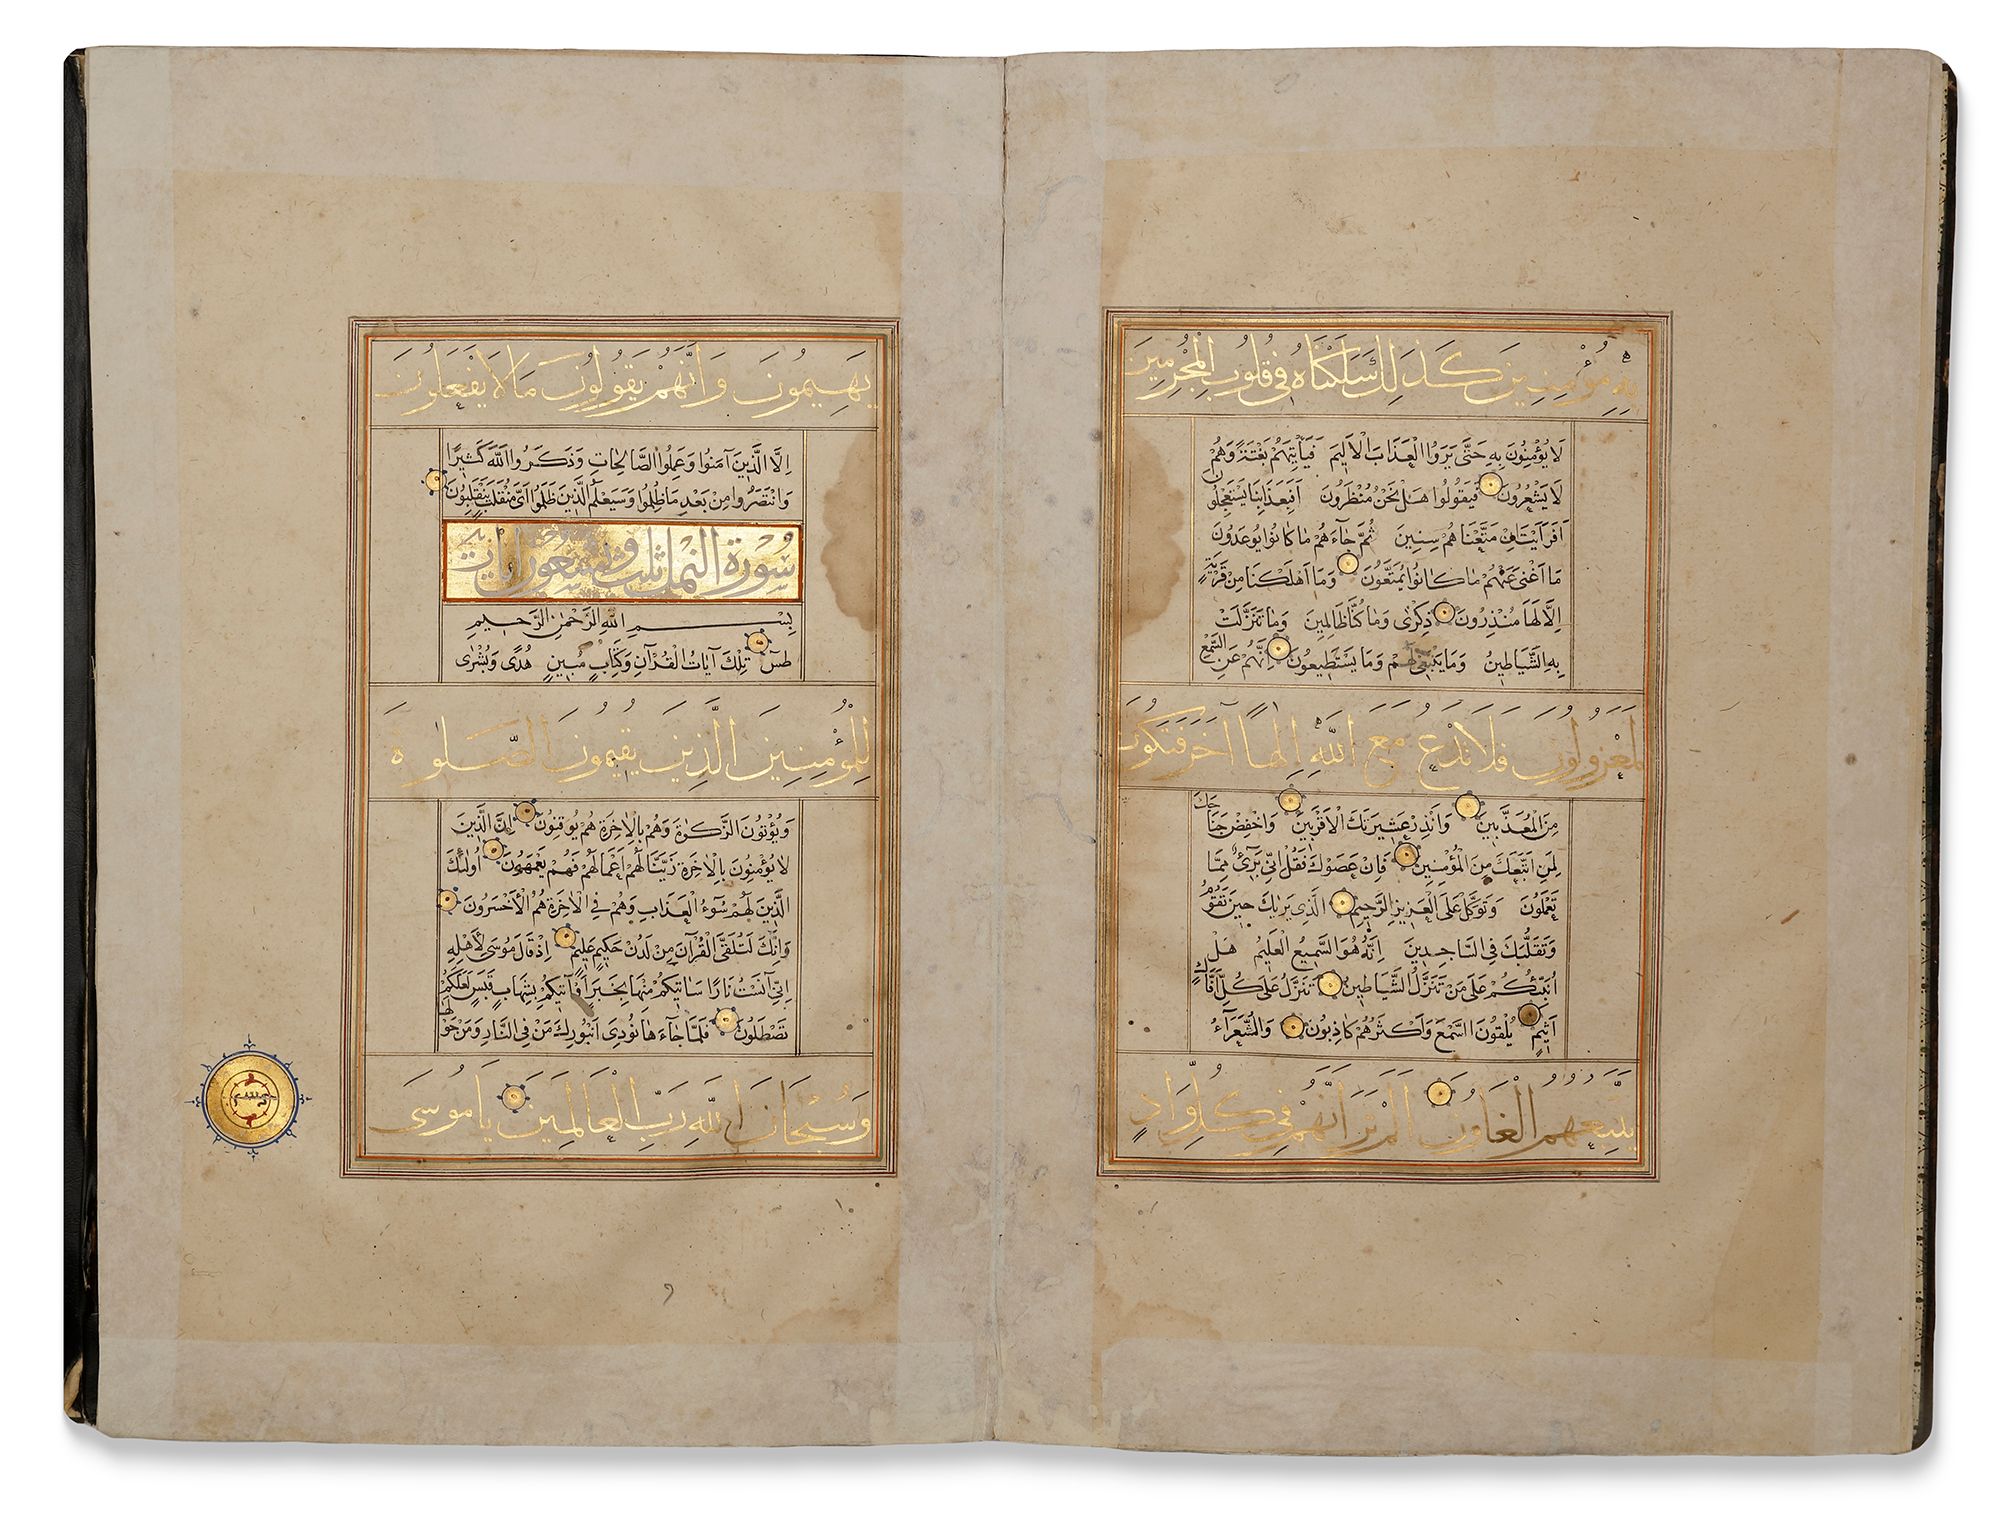 به مؤمنين كذلك سلكناه في قلوب المجرمين
لا يؤمنون به حتى يروا العذاب الأليم فيأتيهم بغتة وهم
لا يشعرون فيقولوا هل نحن منظرون أفبعذابنا يستعجلون
أفرأيت إن متعناهم سنين ثم جاءهم ما كانوا يوعدون
ما أغنى عنهم ما كانوا يمتعون وما أهلكنا من قرية
إلا لها منذرون ذكرى وما كنا ظالمين وما تنزلت
به الشياطين وما ينبغي لهم وما يستطيعون إنهم عن السمع
لمعزولون فلا تدع مع الله إلها آخر فتكون
من المعذبين وأنذر عشيرتك الأقربين واخفض جناحك
لمن اتبعك من المؤمنين فإن عصوك فقل إني بريء مما
تعملون وتوكل على العزيز الرحيم الذي يريك حين تقوم
وتقلبك في الساجدين إنه هو السميع العليم هل
أنبئكم على من تنزل الشياطين تنزل على كل أفاك
أثيم يلقون السمع وأكثرهم كاذبون والشعراء
يتبعهم الغاون ألم تر أنهم في كل واد
يهيمون وأنهم يقولون ما لا يفعلون
إلا الذين آمنوا وعملوا الصالحات وذكروا الله كثيرا
وانتصروا من بعد ما ظلموا وسيعلم الذين ظلموا أي منقلب ينقلبون
سورة النمل ثلث وتسعون آيات
بسم الله الرحمن الرحيم
طس تلك آيات القرآن وكتاب مبين هدى وبشرى
للمؤمنين الذين يقيمون الصلوة
ويؤتون الزكوة وهم بالآخرة هم يوقنون إن الذين
لا يؤمنون بالآخرة زينا لهم أعمالهم فهم يعمهون أولئك
الذين لهم سوء العذاب وهم في الآخرة هم الأخسرون
وإنك لتلقى القرآن من لدن حكيم عليم إذ قال موسى لأهله
إني آنست نارا سآتيكم منها بخبر أو آتيكم بشهاب قبس لعلكم
تصطلون فلما جاءها نودي أن بورك من في النار ومن حولها
وسبحان الله رب العالمين يا موسى